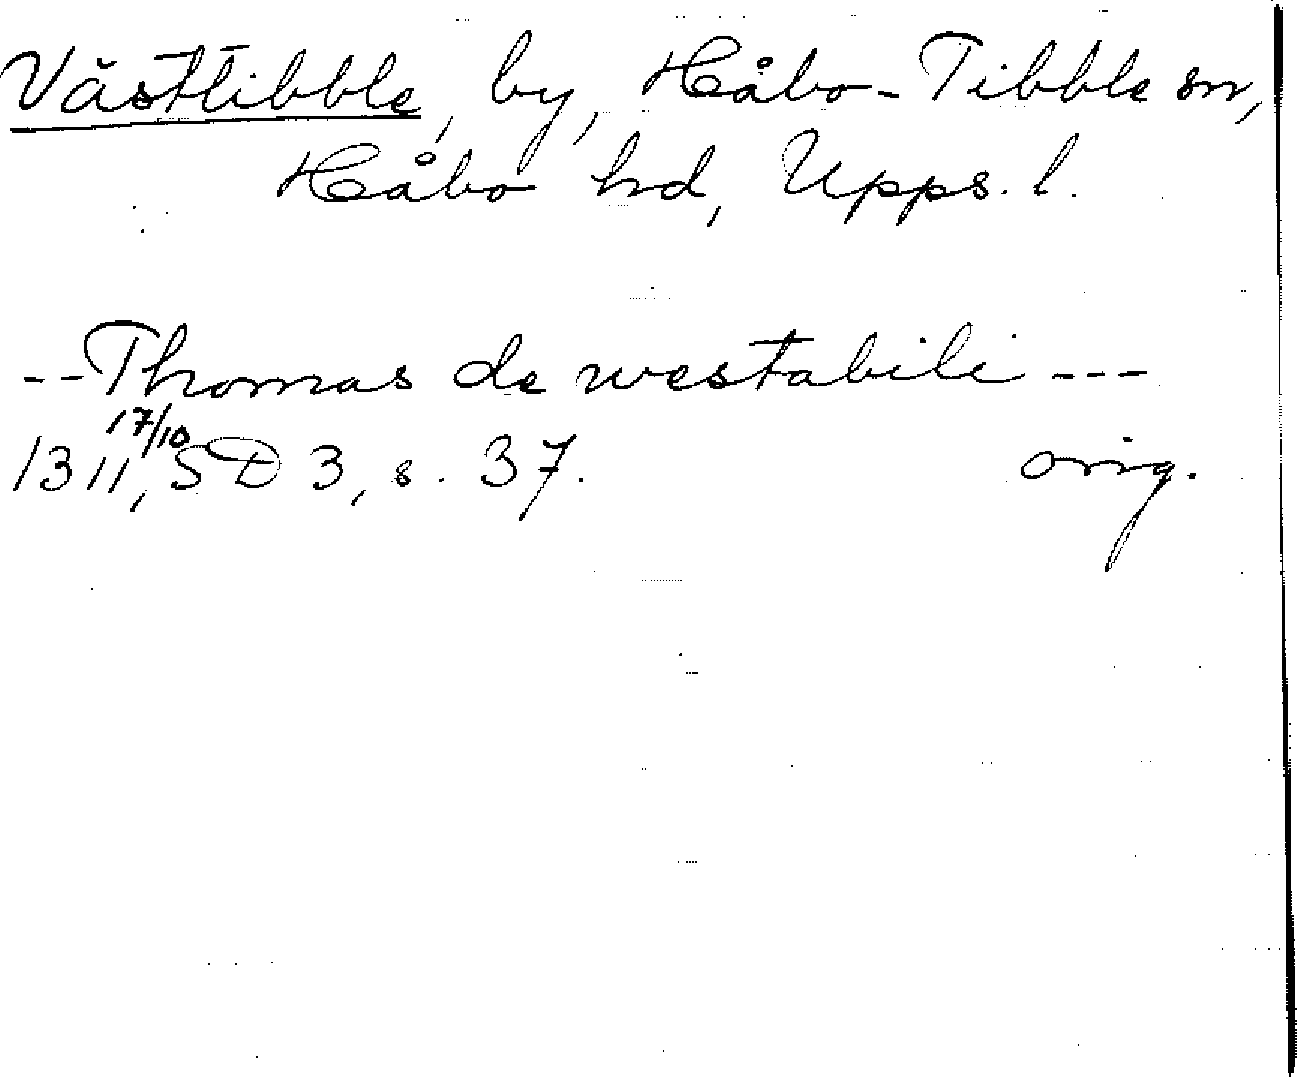 Västtibble, by, Håbo-Tibble sn,
Håbo hd, Upps. l.
--Thomas de westabili---
1311 17/10, SD 3, s. 37. orig.